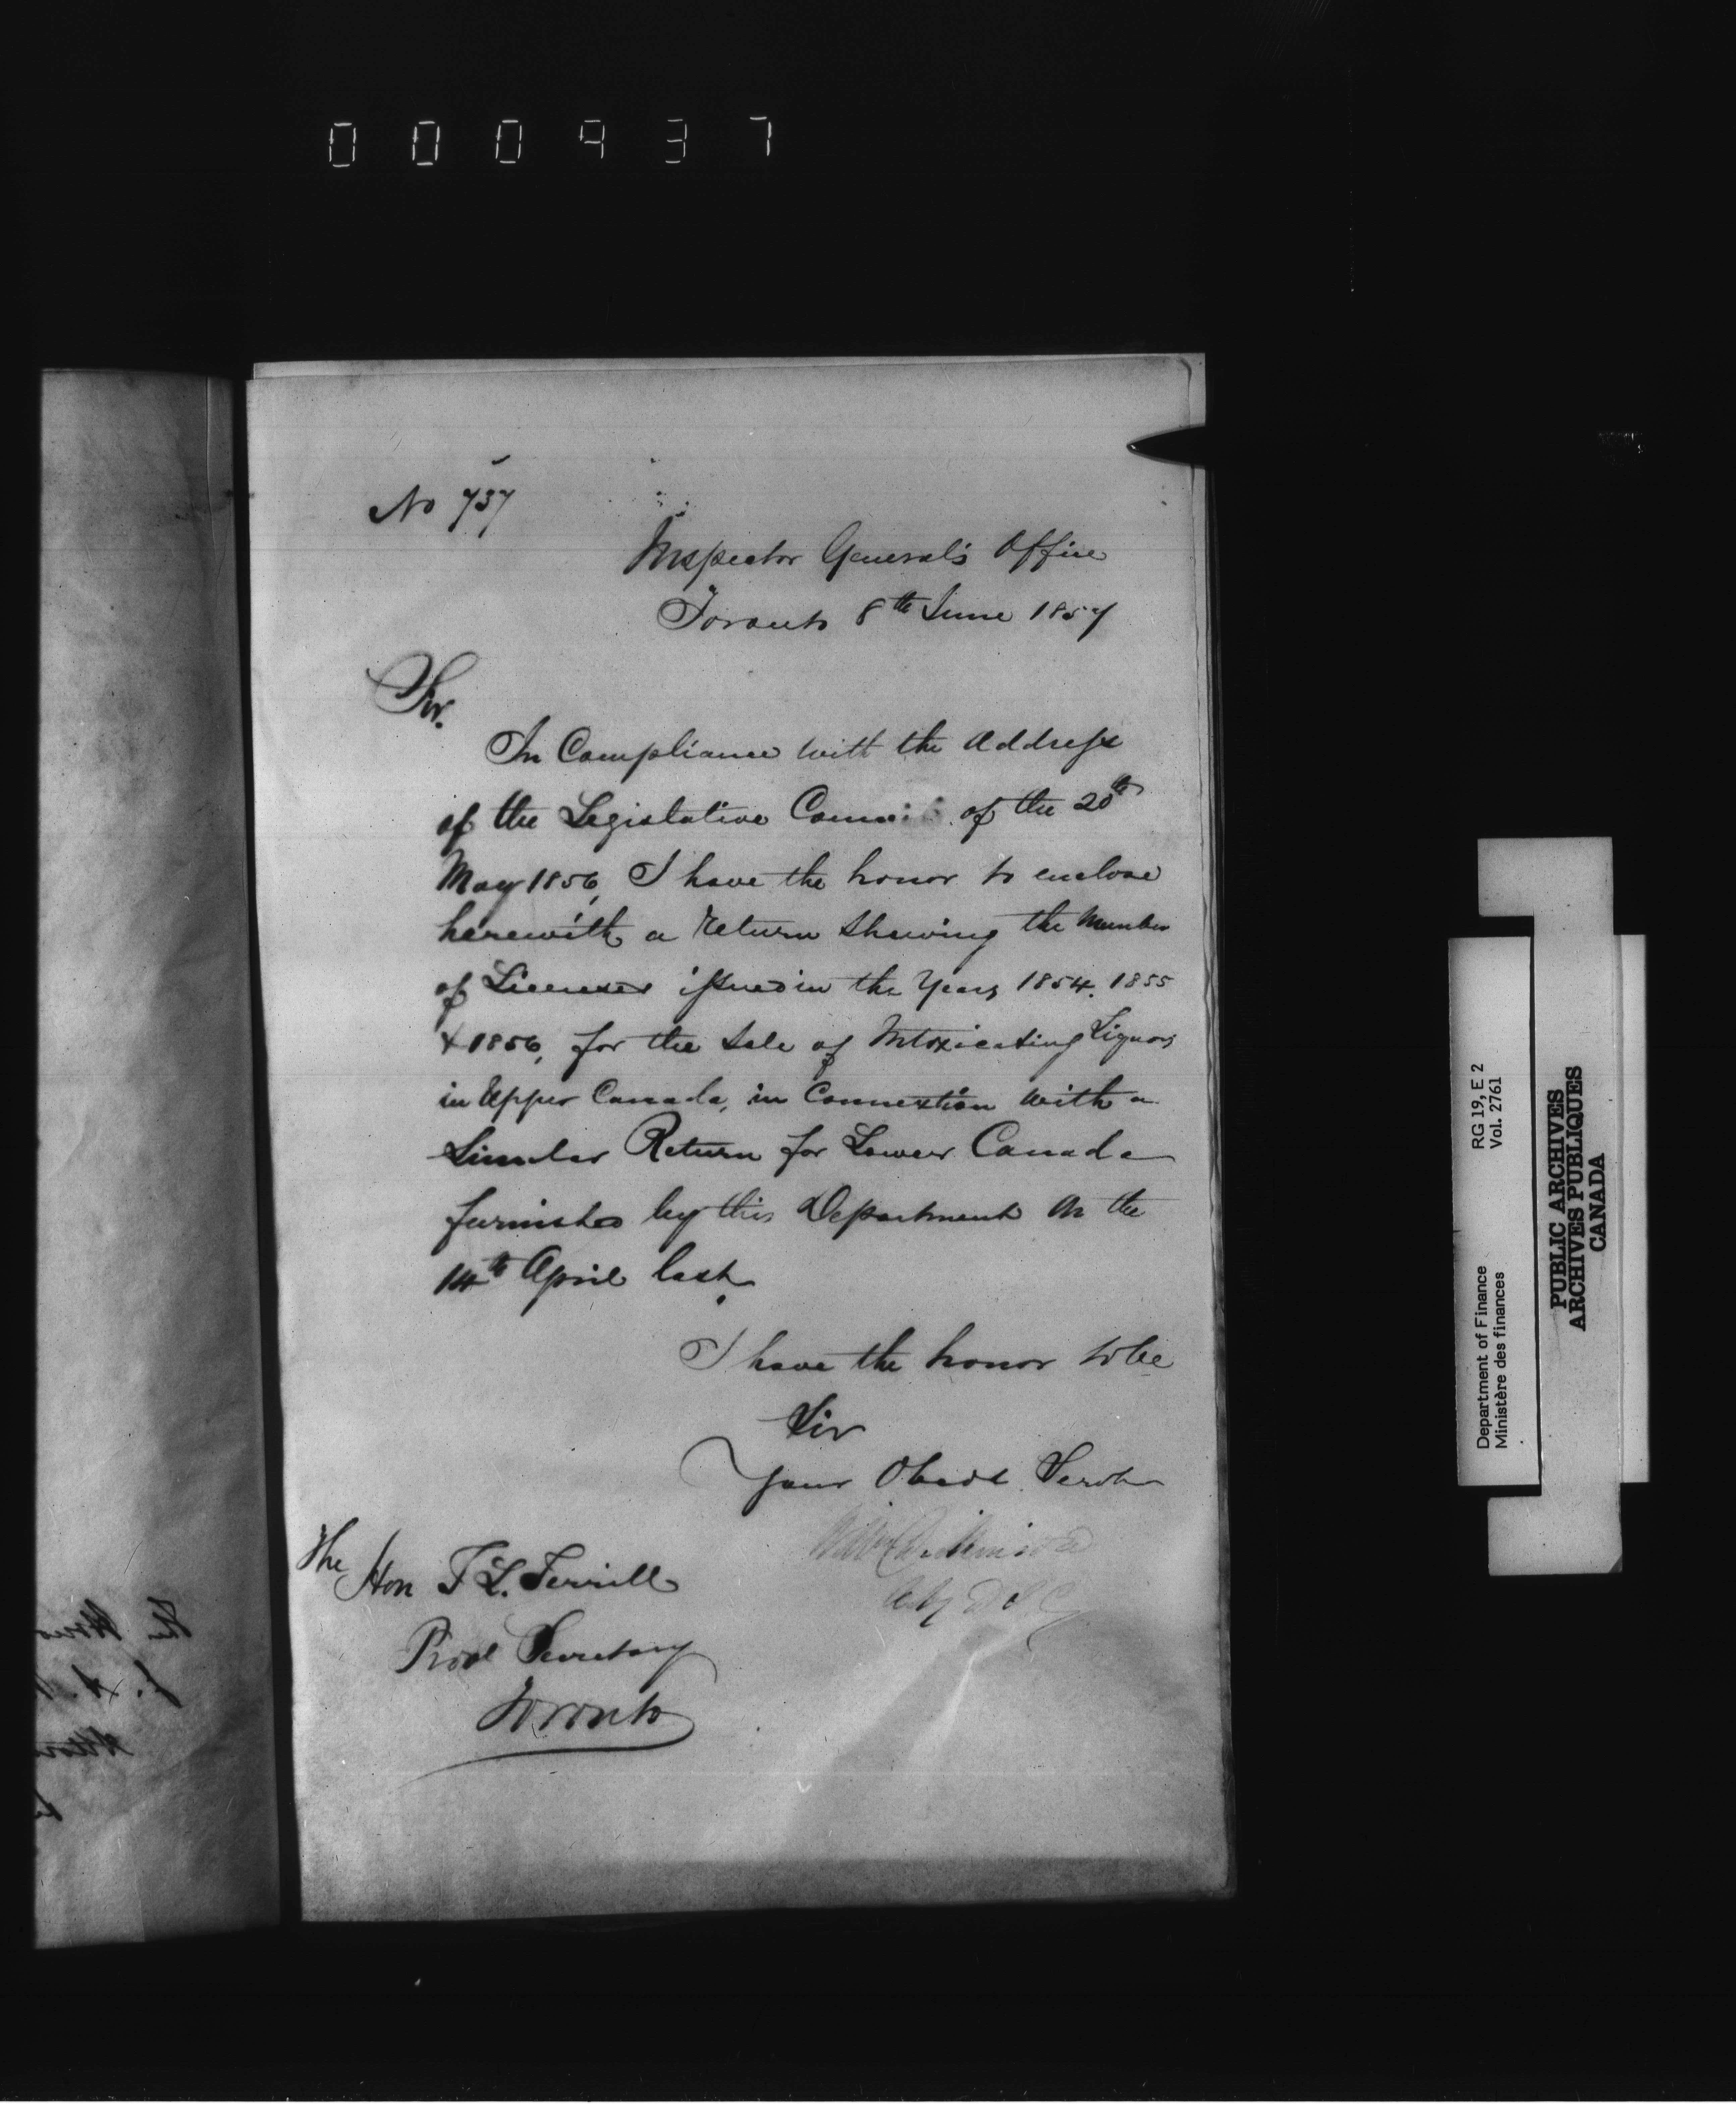 000437
No 737
Inspector General's Office
Toronto 8th June 1857
Sir.
In Compliance with the Address
of the Legislative Council of the 20th
May 1856, I have the honor to enclose
herewith a return shewing the Number
of Licenses issued in the Years 1854. 1855
& 1856, for the Sale of Intoxicating Liquors
in Upper Canada, in Connextion with a
Similar Return for Lower Canada
furnished by this Department on the
14th April last.
I have the honor to be
Sir
Your Obedt. Servt
The Hon T L. Terrill
Provl Secretary
Toronto
RG 19, E 2
Vol. 2761
Department of Finance
Ministère des finances
PUBLIC ARCHIVES
ARCHIVES PUBLIQUES
CANADA